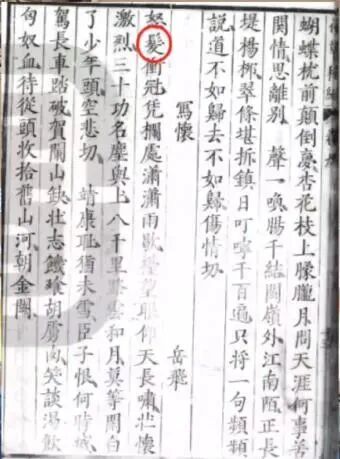 蝴蝶枕前顛倒夢杏花枝上朦朧月問天涯何事苦
關情思離別 聲一喚腸千結閩嶺外江南陌正長
堤楊柳翠條堪折鎮日叮嚀千百遍只將一句頻頻
說道不如歸去不如歸傷情切
寫懷 岳飛
怒髮衝冠凭欄處瀟瀟雨歇望仰天長嘯壯懷
激烈三十功名塵與土八千里路雲和月莫等閒白
了少年頭空悲切 靖康恥猶未雪臣子恨何時滅
駕長車踏破賀蘭山缺壯志饑飡胡虜肉笑談渴飲
匈奴血待從頭收拾舊山河朝金闕